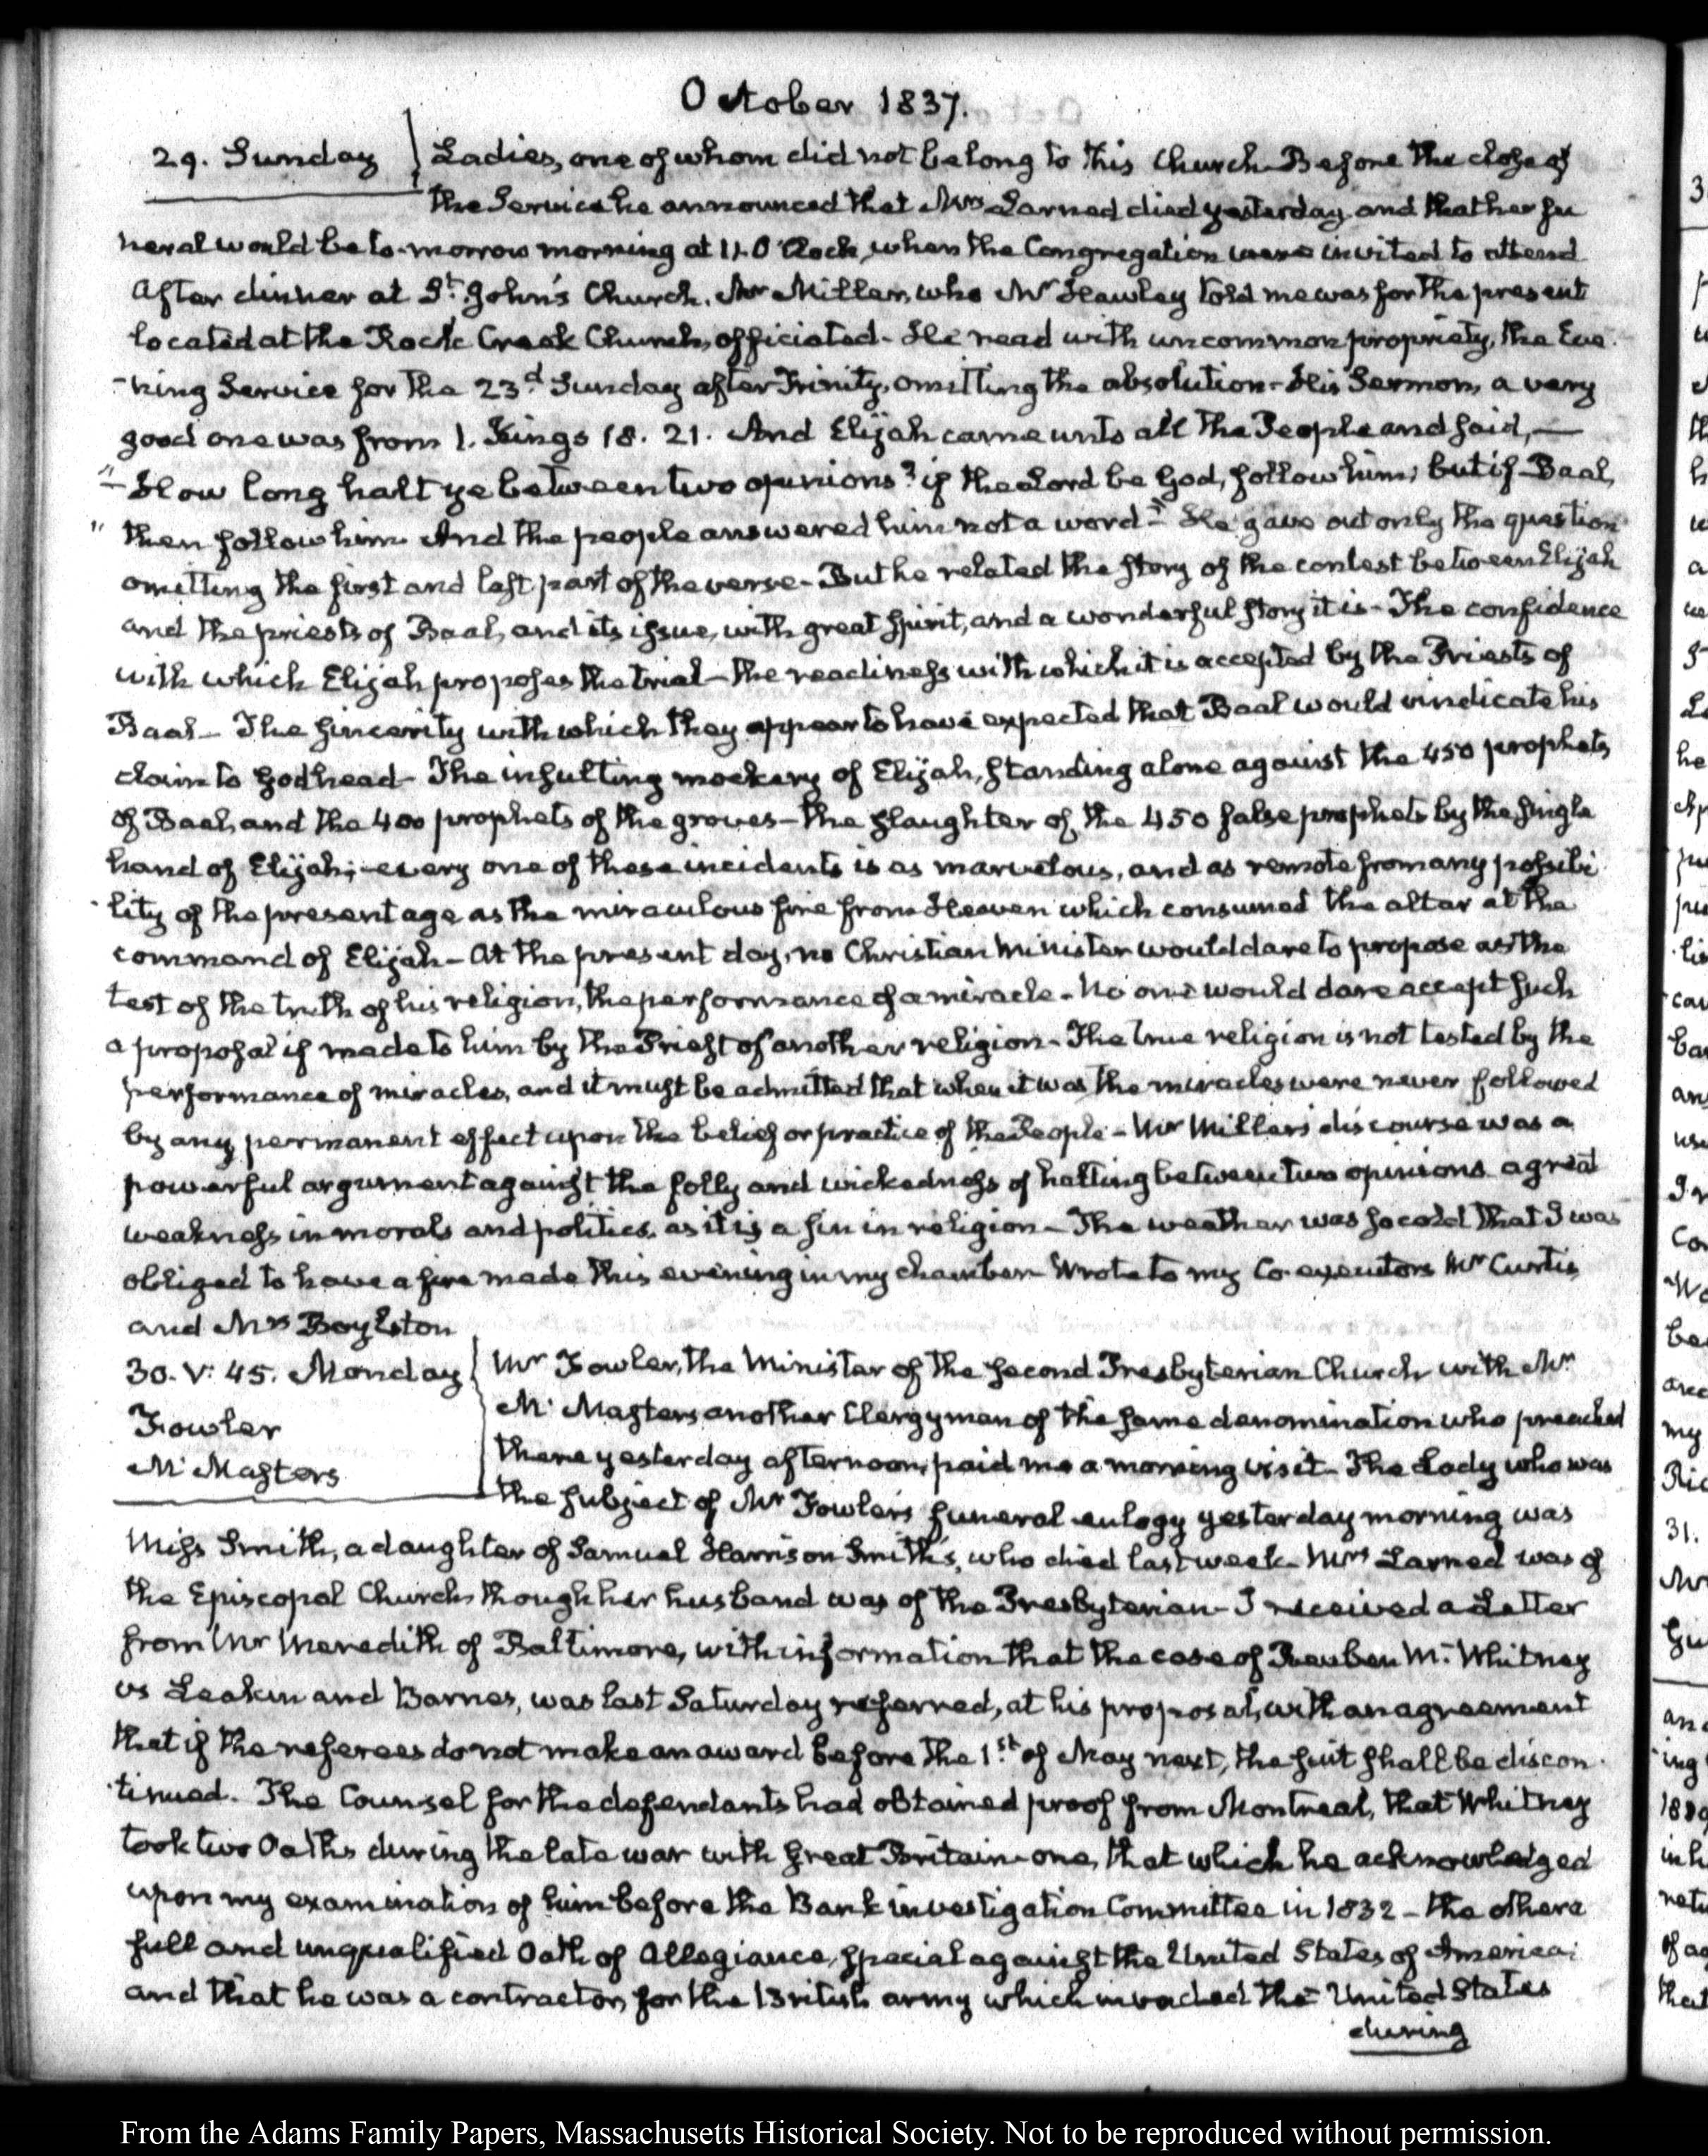 October 1837.
29. Sunday
Ladies, one of whom did not belong to this Church. Before the close of
the Service he announced that Mrs Larned died yesterday and that her fu
neral would be to-morrow morning at 11. O'Clock, when the Congregation were invited to attend
After dinner at St. John's Church. Mr Miller, who Mr Hawley told me was for the present
located at the Rock Creek Church, officiated. He read with uncommon propriety, the Eve
-ning Service for the 23d Sunday after Trinity, omitting the absolution - His Sermon, a very
good one was from 1. Kings 18. 21. And Elijah came unto all the People and said, —
"How long halt ye between two opinions? if the Lord be God, follow him; but if Baal,
" then follow him. And the people answered him not a word" - He gave out only the question
omitting the first and last part of the verse - But he related the story of the contest between Elijah
and the priests of Baal, and its issue, with great spirit, and a wonderful story it is - The confidence
with which Elijah proposes the trial - the readiness with which it is accepted by the Priests of
Baal - The sincerity with which they appear to have expected that Baal would vindicate his
claim to Godhead - The insulting mockery of Elijah, standing alone against the 450 prophets
of Baal, and the 400 prophets of the groves - the slaughter of the 450 false prophets by the single
hand of Elijah; every one of these incidents is as marvelous, and as remote from any possibi
-lity of the present age as the miraculous fire from Heaven which consumed the altar at the
command of Elijah - At the present day, no Christian Minister would dare to propose as the
test of the truth of his religion, the performance of a miracle - No one would dare accept such
a proposal if made to him by the Priest of another religion - The true religion is not tested by the
performance of miracles, and it must be admitted that when it was the miracles were never followed
by any permanent effect upon the belief or practice of the People - Mr Miller's discourse was a
powerful argument against the folly and wickedness of halting between two opinions a great
weakness in morals and politics, as it is a sin in religion - The weather was so cold that I was
obliged to have a fire made this evening in my chamber. Wrote to my Co-executors Mr Curtis
and Mrs Boylston
30. V: 45. Monday
Fowler
McMasters
Mr Fowler, the Minister of the second Presbyterian Church with Mr
McMasters another Clergyman of the same denomination who preached
there yesterday afternoon, paid me a morning visit - The Lady who was
the subject of Mr Fowler's funeral eulogy yesterday morning was
Miss Smith, a daughter of Samuel Harrison Smith's, who died last week. Mrs Larned was of
the Episcopal Church, though her husband was of the Presbyterian - I received a Letter
from Mr Meredith of Baltimore, with information that the case of Reuben M. Whitney
vs Leakin and Barnes, was last Saturday referred, at his proposal, with an agreement
that if the referees do not make an award before the 1st of May next, the suit shall be discon
-tinued. The Counsel for the defendants had obtained proof from Montreal, that Whitney
took two Oaths during the late war with Great Britain - one, that which he acknowledged
upon my examination of him before the Bank investigation Committee in 1832 - the other a
full and unqualified Oath of Allegiance, special against the United States of America:
and that he was a contractor, for the British army which invaded the United States
during
From the Adams Family Papers, Massachusetts Historical Society. Not to be reproduced without permission.